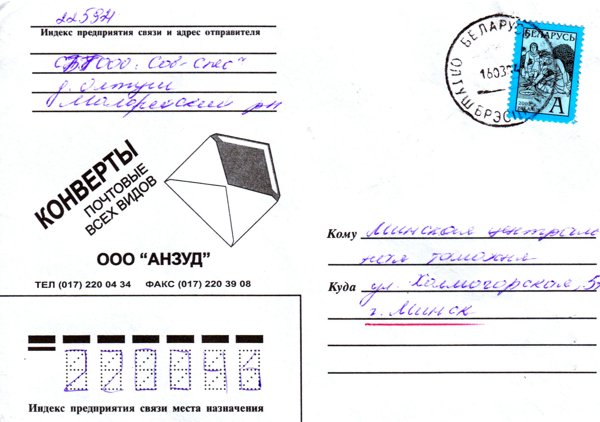 22594
Индекс предприятия связи и адрес отправителя
ООО "Сов-Спес"
д. Олтуш
Малоритский рн
КОНВЕРТЫ
ПОЧТОВЫЕ
ВСЕХ ВИДОВ
ООО “АНЗУД”
ТЕЛ (017) 220 04 34 ФАКС (017) 220 39 08
БЕЛАРУСЬ
А
БЕЛАРУСЬ
ОЛТУШ БРЭСЦ
Кому Минская централь
ная таможня
Куда ул. Холмогорская, 5
г. Минск
220046
Индекс предприятия связи места назначения